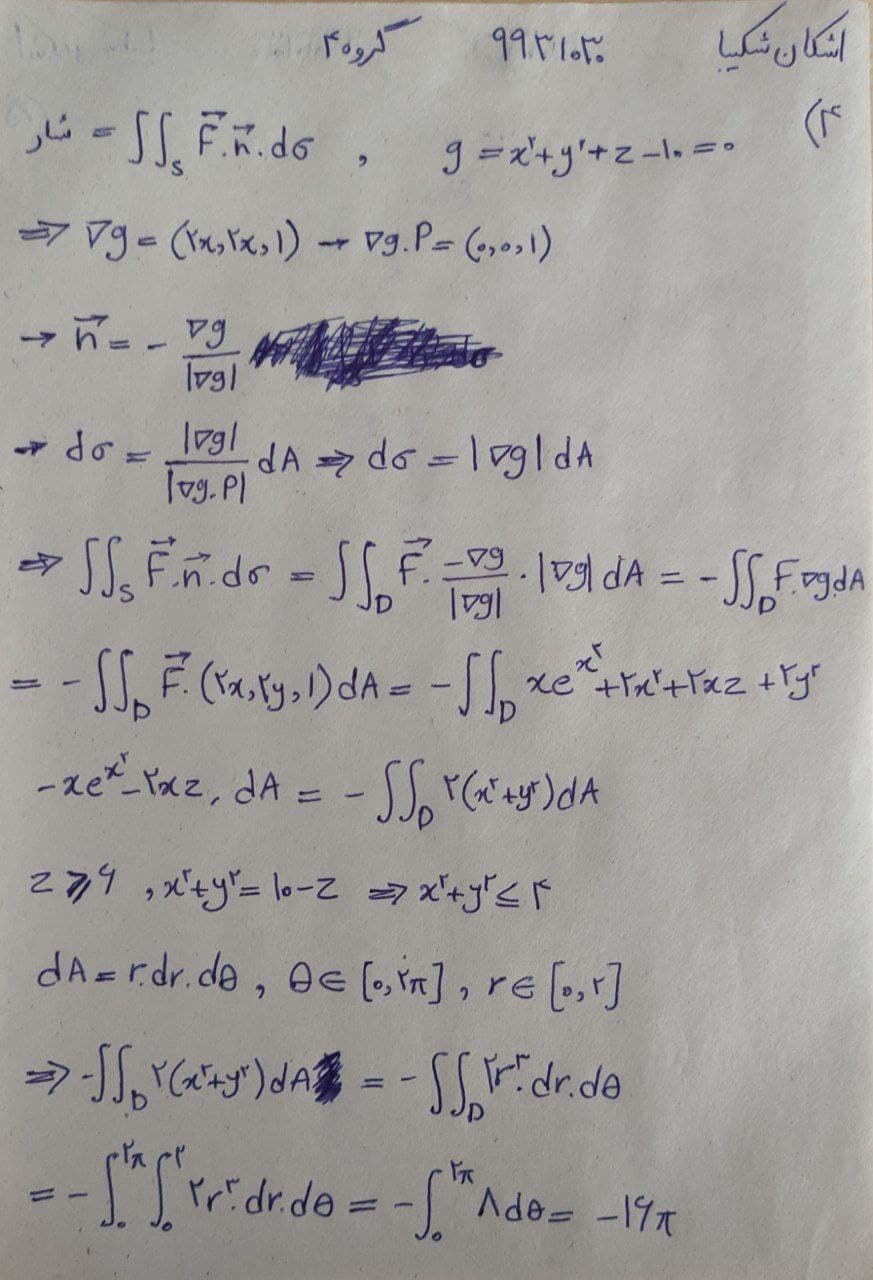 اشکان شکیبا ۹۹۳۱۰۳۰ گروه ۴
۴)
شار = ∬ₛ F⃗.n⃗.dσ , g = x²+y²+z-۱۰=۰
⇒ ∇g = (۲x,۲x,۱) → ∇g.P = (۰,۰,۱)
→ n⃗ = - ∇g/|∇g|
→ dσ = |∇g|/|∇g.P| dA ⇒ dσ = |∇g|dA
⇒ ∬ₛ F⃗.n⃗.dσ = ∬_D F⃗. -∇g/|∇g| . |∇g| dA = -∬_D F.∇g dA
= -∬_D F⃗.(۲x,۲y,۱)dA = -∬_D xe^x² +۲x²+۲xz +۲y²
-xe^x² -۲xz, dA = -∬_D ۲(x²+y²)dA
z ⩾ ۶ , x²+y² = ۱۰-z ⇒ x²+y² ≤ ۴
dA = r.dr.dθ , θ∈[۰,۲π] , r∈[۰,۲]
⇒ -∬_D ۲(x²+y²)dA = -∬_D ۲r³.dr.dθ
= -∫₀^۲π ∫₀^۲ ۲r³.dr.dθ = -∫₀^۲π ۸dθ = -۱۶π